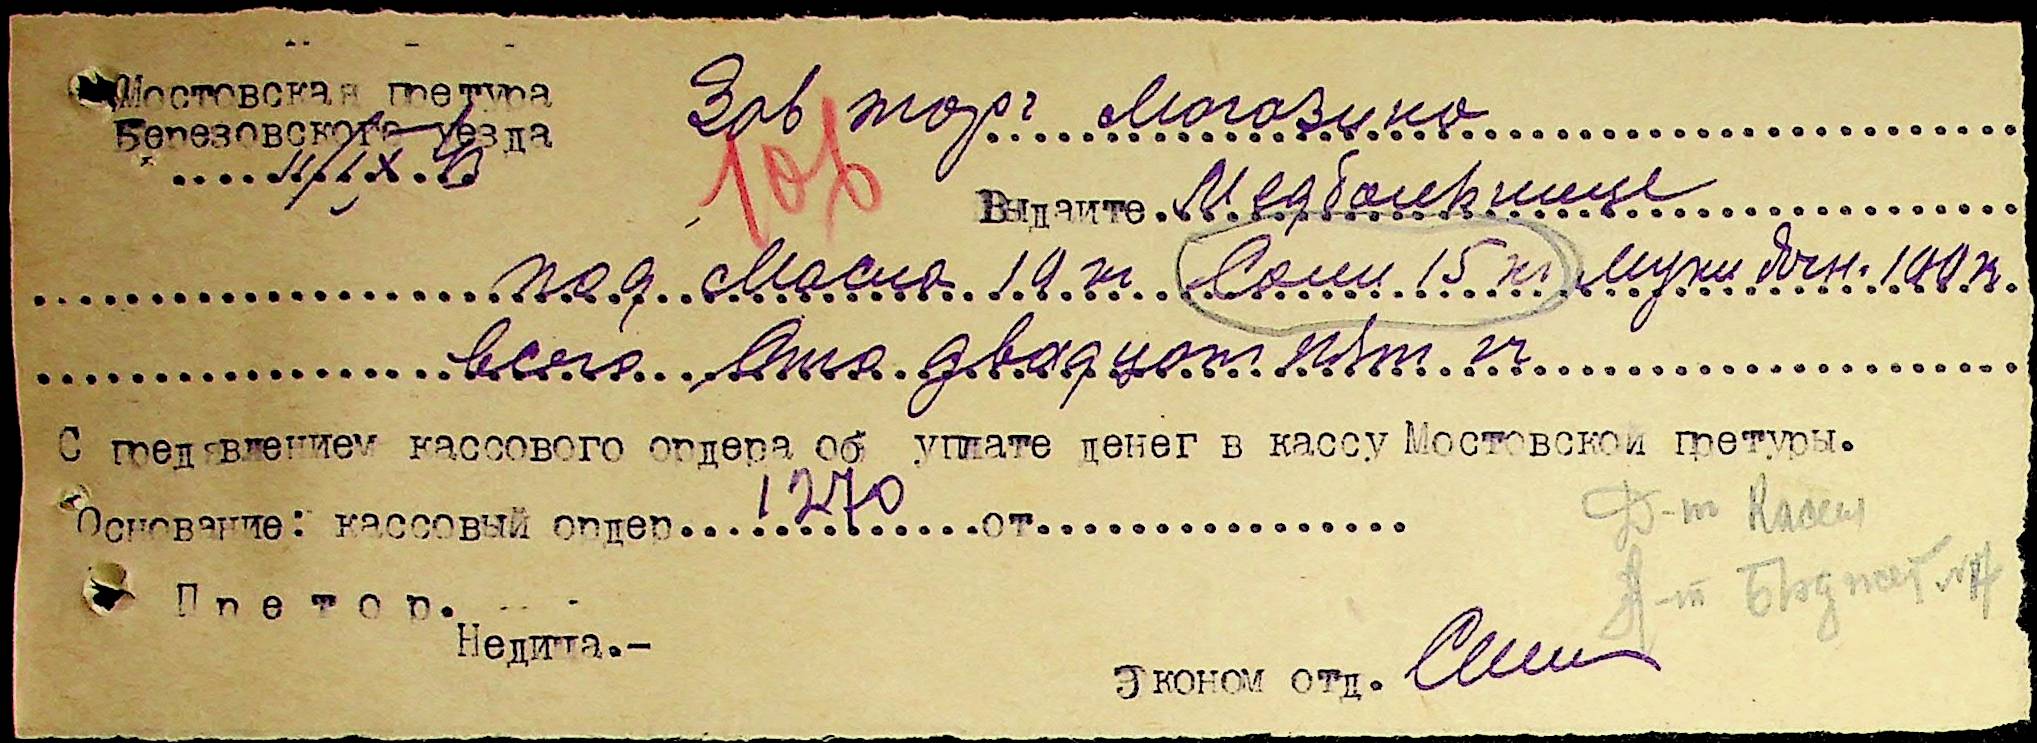 Мостовская претура
Березовского уезда
Зав торг Магазина
11/IX
108
Выдаите Медбольнице
под Масло 10 кг Соли 15 кг Муки 100 к
всего Сто двадцать пят кг
С предявлением кассового ордера об уплате денег в кассу Мостовской претуры.
Основание: кассовый ордер 1270 от
Д-т Касса
К-т Бюджет
Претор.
Недича.-
Эконом отд.